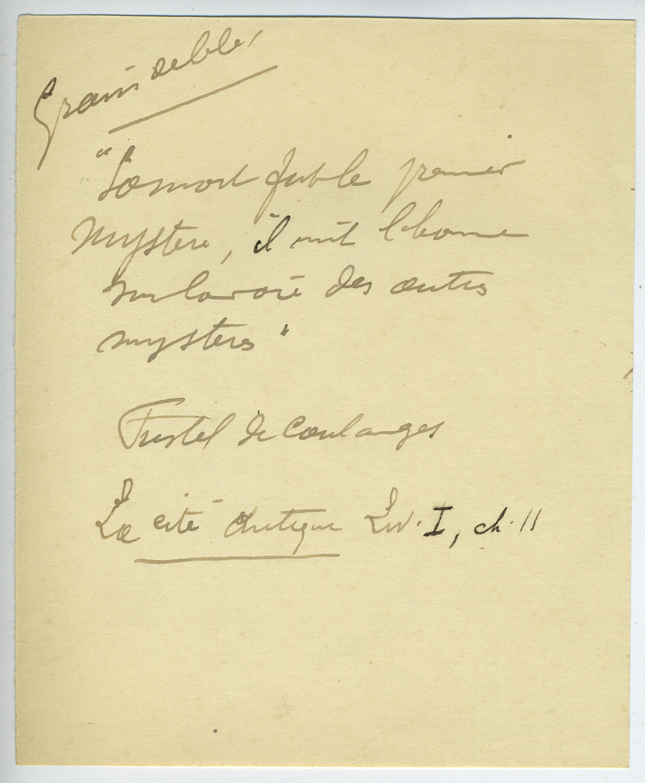 Grains de blé
"La mort fut le premier
mystère, il mit l'homme
sur la voie des autres
mystères"
Fustel de Coulanges
La cité antique Liv. I, ch. II